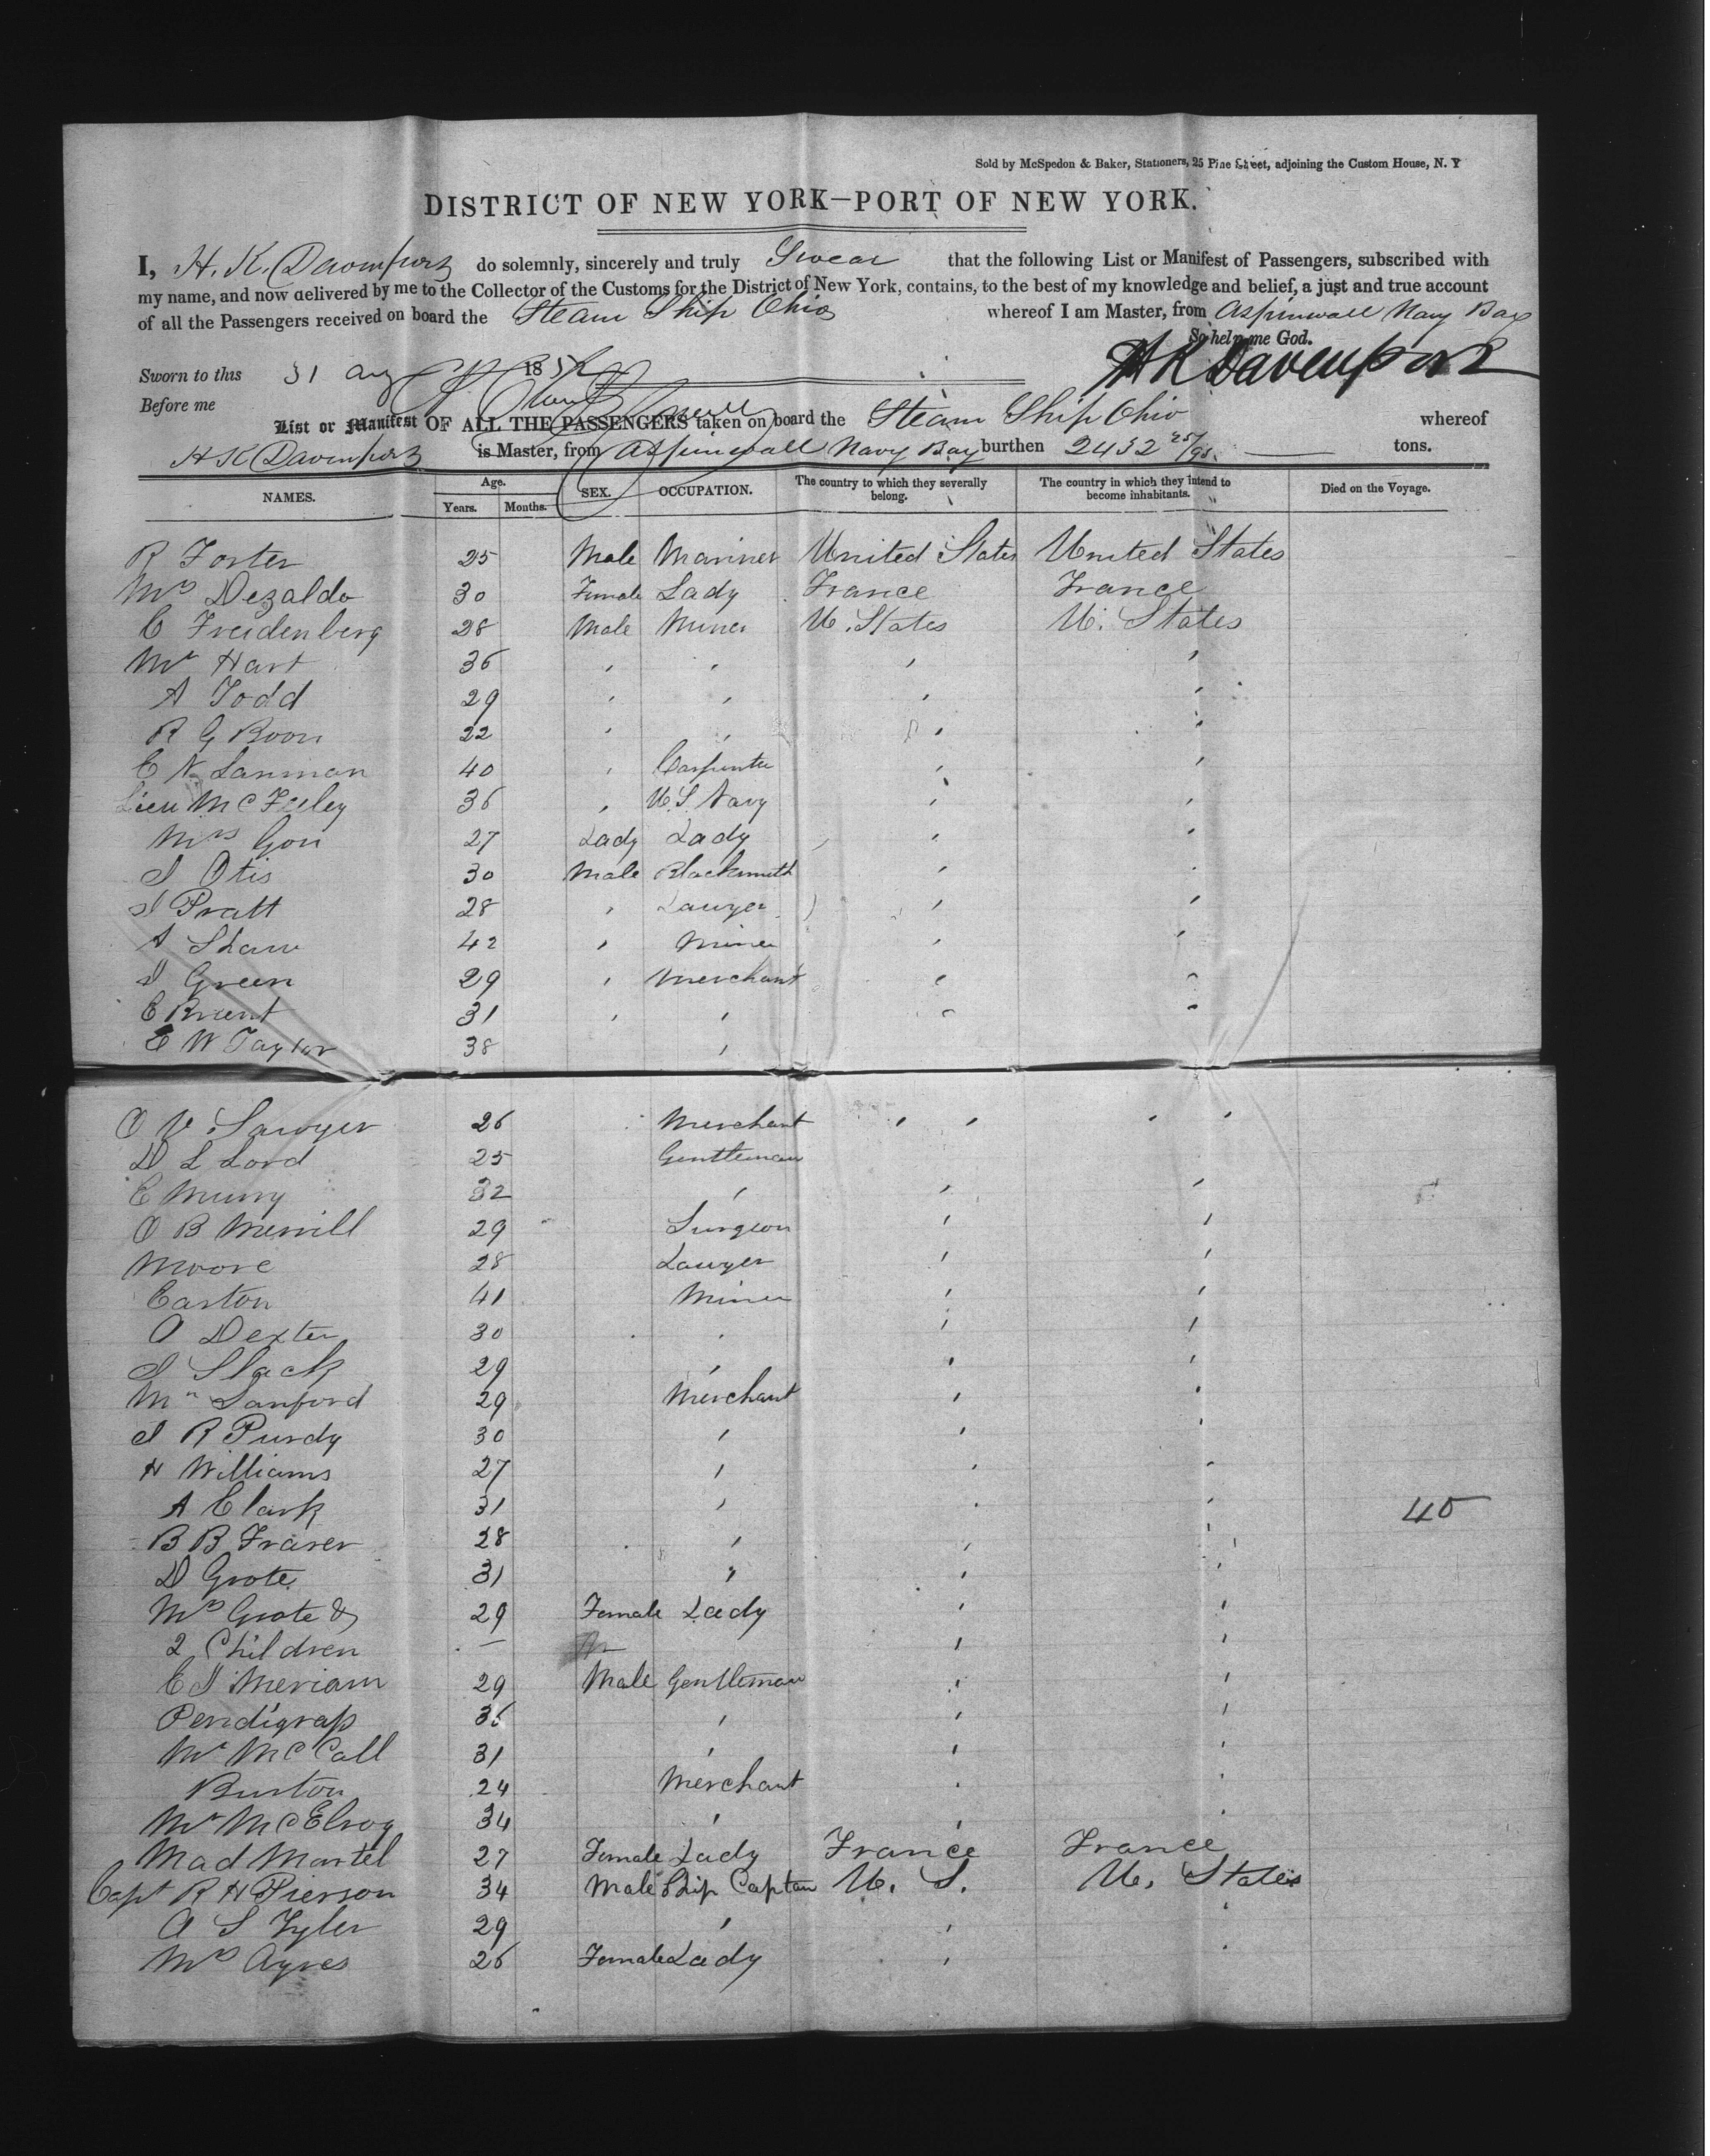 Sold by McSpedon & Baker, Stationers, 25 Pine Street, adjoining the Custom House, N. Y
DISTRICT OF NEW YORK—PORT OF NEW YORK.
I, H. K. Davenport do solemnly, sincerely and truly Swear that the following List or Manifest of Passengers, subscribed with
my name, and now delivered by me to the Collector of the Customs for the District of New York, contains, to the best of my knowledge and belief, a just and true account
of all the Passengers received on board the Steam Ship Ohio whereof I am Master, from Aspinwall Navy Bay
So help me God.
Sworn to this 31 Aug 1852 H K Davenport
Before me
List or Manifest OF ALL THE PASSENGERS taken on board the Steam Ship Ohio whereof
H K Davenport is Master, from Aspinwall Navy Bay burthen 2432 25/95 tons.
NAMES. Age. Years. Months. SEX. OCCUPATION. The country to which they severally belong. The country in which they intend to become inhabitants. Died on the Voyage.
R Foster 25 Male Mariner United States United States
Mrs Dezaldo 30 Female Lady France France
C Freidenberg 28 Male Miner U. States U. States
Mr Hart 36 " " " "
A Todd 29 " " " "
R G Boon 22 " " " "
C N Lanman 40 " Carpenter " "
Lieu McFeeley 36 " U.S. Navy " "
Mrs Gon 27 Lady Lady " "
J Otis 30 Male Blacksmith " "
J Pratt 28 " Lawyer " "
A Shaw 42 " Miner " "
J Green 29 " Merchant " "
C Brient 31 " " " "
E W Taylor 38 "
O V Sawyer 26 Merchant " " " "
D L Lord 25 Gentleman
C Murry 32 " " "
O B Merrill 29 Surgeon " "
Moore 28 Lawyer " "
Easton 41 Miner " "
O Dexter 30 " " "
J Slack 29 " " "
Mr Sanford 29 Merchant " "
J R Purdy 30 " " "
H Williams 27 " " "
A Clark 31 " " " 40
B B Fraser 28 " " "
D Grote 31 " " "
Mrs Grote & 29 Female Lady " "
2 Children — " "
C J Meriam 29 Male Gentleman " "
Pendigrass 36 " " "
Mr McCall 31 " " "
Burton 24 Merchant " "
Mr McElroy 34 " " "
Mad Martel 27 Female Lady France France
Capt R H Pierson 34 Male Ship Captan U. S. U. States
A S Tyler 29 " " "
Mrs Ayres 26 Female Lady " "